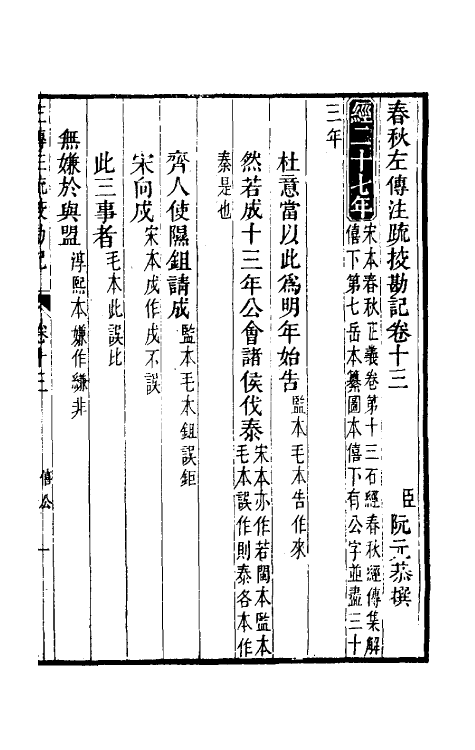 春秋左傳注疏挍勘記卷十三
臣阮元恭撰
經二十七年
宋本春秋正義卷第十三石經春秋經傳集解
僖下第七岳本纂圖本僖下有公字並盡三十
三年
杜意當以此爲明年始告
監本毛本告作來
然若成十三年公會諸侯伐泰
宋本亦作若閩本監本
毛本誤作則泰各本作
秦是也
齊人使隰鉏請成
監本毛本鉏誤鉅
宋向戍
宋本戍作戌不誤
此三事者
毛本此誤比
無嫌於與盟
淳熙本嫌作縑非
卷十三
僖公
一